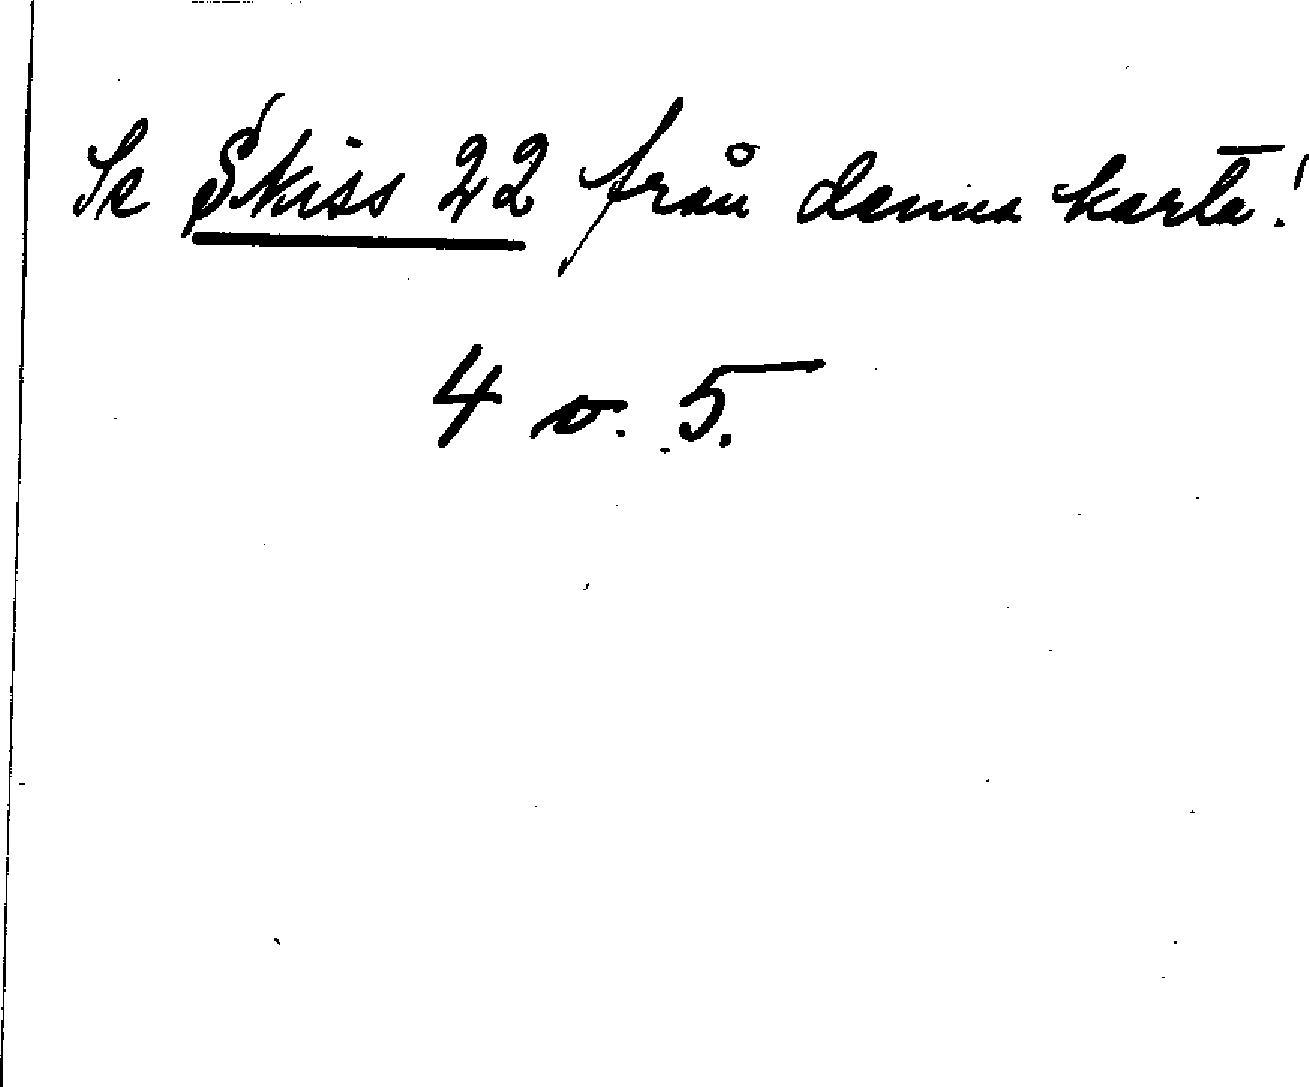 Se Skiss 22 från denna karta!
4 v. 5.